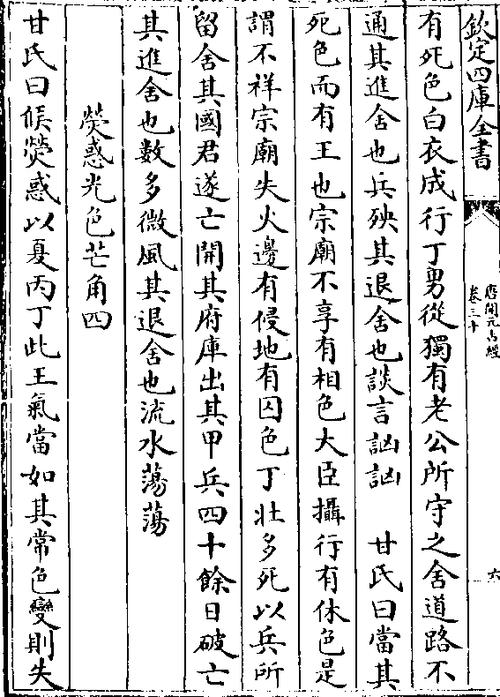 欽定四庫全書
唐開元占經
卷三十
六
有死色白衣成行丁男從獨有老公所守之舍道路不
通其進舍也兵殃其退舍也談言訩訩　甘氏曰當其
死色而有王也宗廟不享有相色大臣攝行有休色是
謂不祥宗廟失火邊有侵地有囚色丁壯多死以兵所
留舍其國君遂亡開其府庫出其甲兵四十餘日破亡
其進舍也數多微風其退舍也流水蕩蕩
熒惑光色芒角四
甘氏曰候熒惑以夏丙丁此王氣當如其常色變則失